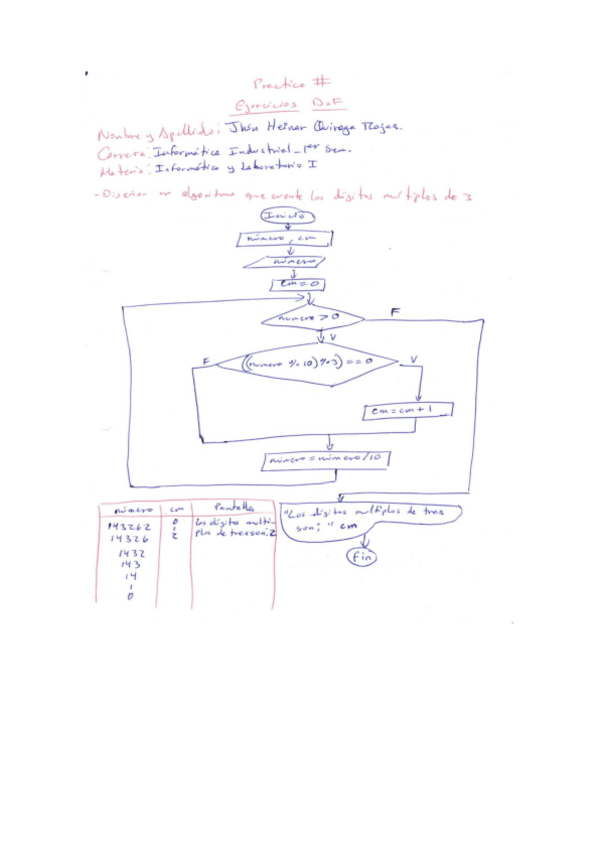 Practica #
Ejercicios D.F
Nombre y Apellido: Jhón Heiner Quiroga Rojas.
Carrera: Informática Industrial - 1er Sem.
Materia: Informática y Laboratorio I
- Diseñar un algoritmo que cuente los dígitos múltiplos de 3
Inicio
número, cm
número
cm=0
número > 0
F
V
((número % 10) % 3) == 0
F
V
cm=cm+1
número = número/10
número cm Pantalla
143262 0 Los dígitos múlti-
14326 1 plos de tres son: 2
1432 2
143
14
1
0
"Los dígitos múltiplos de tres
son; " cm
Fin